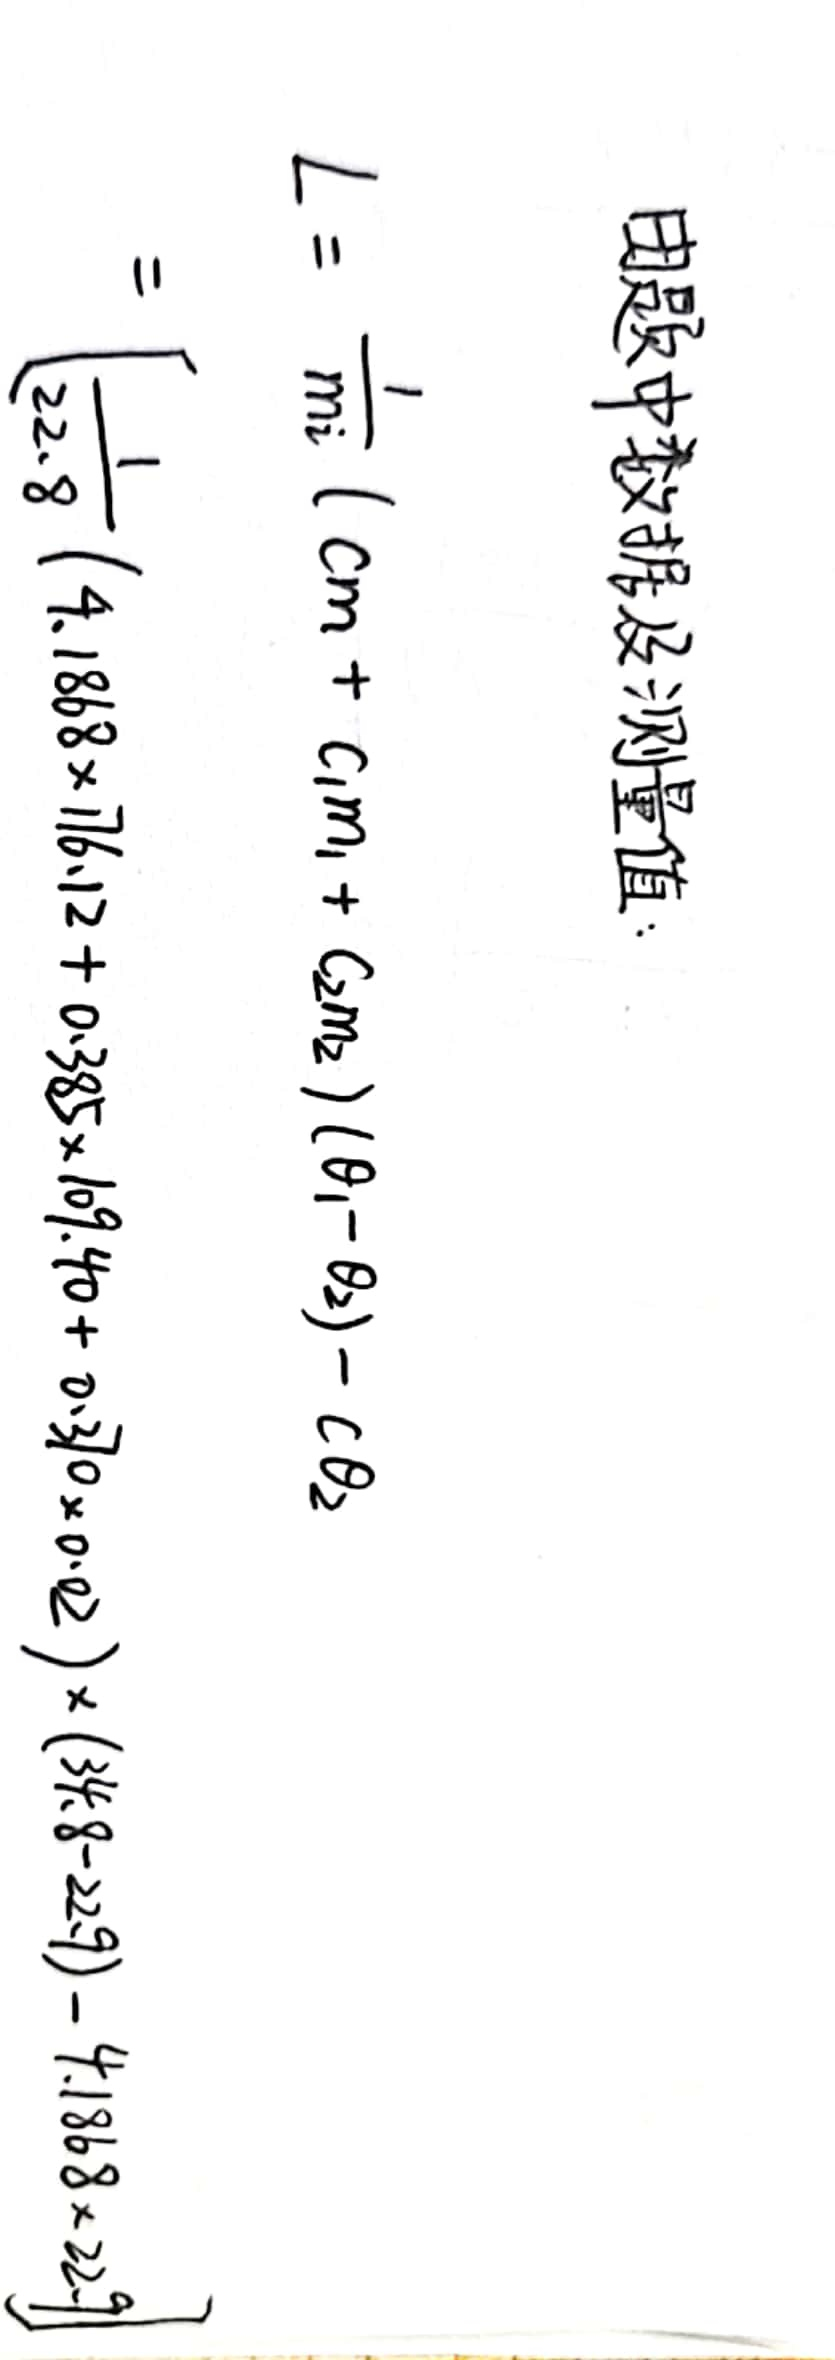 由题中数据及测量值:
L = 1/mi (cm + c₁m₁ + c₂m₂)(θ₁-θ₂) - cθ₂
= [1/22.8 (4.1868×176.12 + 0.385×109.40 + 0.370×0.02)×(34.8-22.9) - 4.1868×22.9]